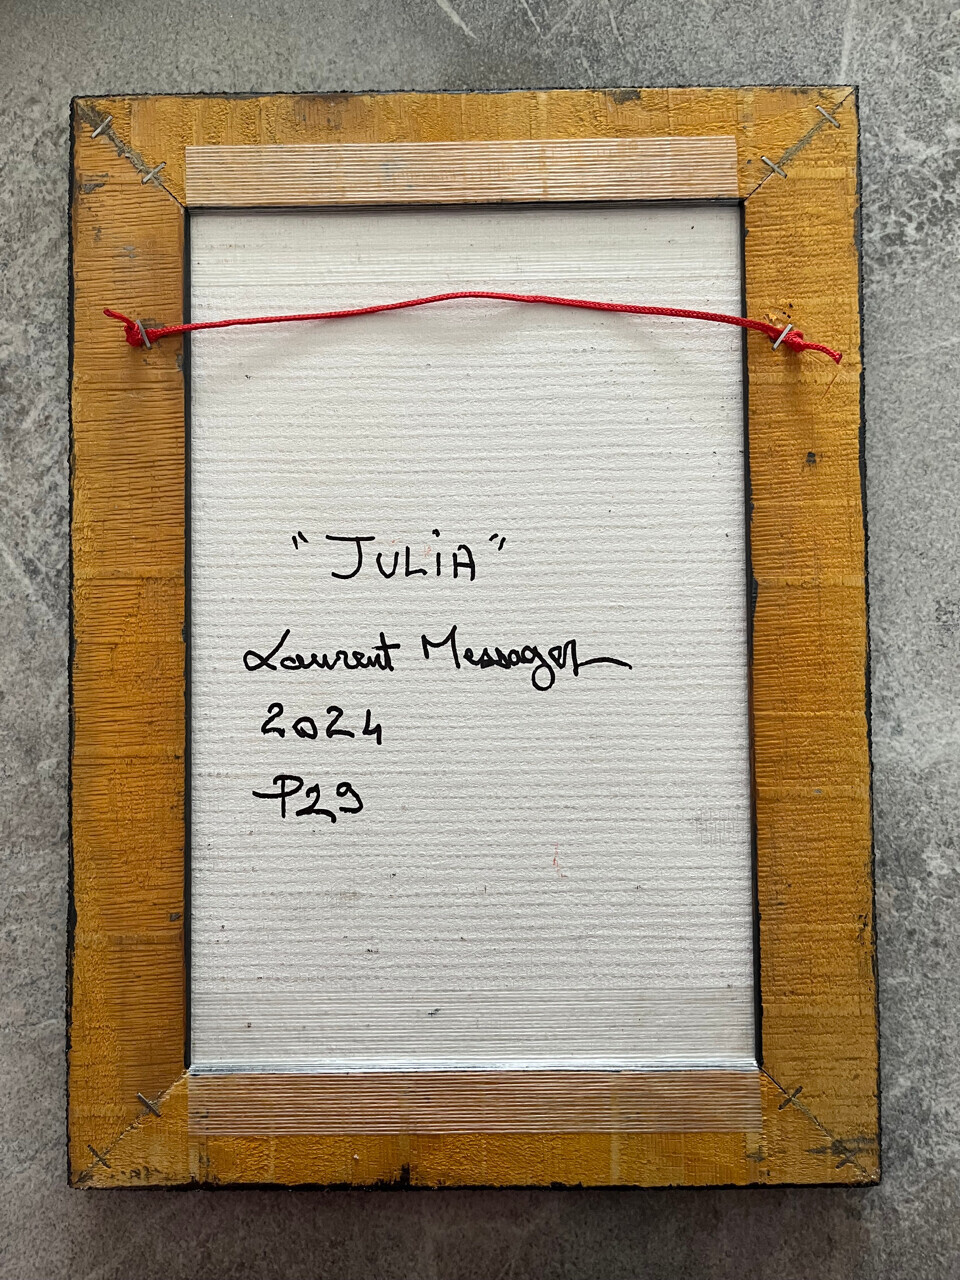 "JULiA"
Laurent Messager
2024
P29